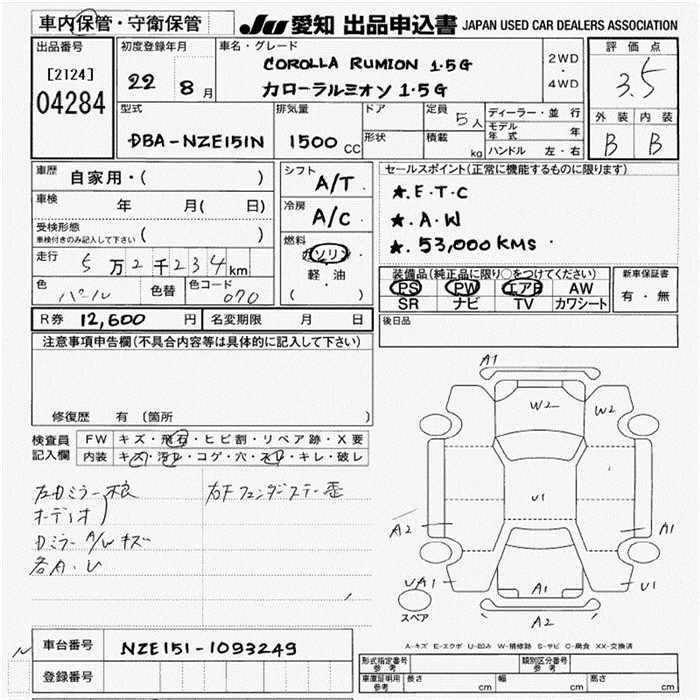 車内保管・守衛保管
JU 愛知 出品申込書 JAPAN USED CAR DEALERS ASSOCIATION
出品番号
[2124]
04284
初度登録年月
22 8月
車名・グレード
COROLLA RUMION 1.5G
カローラルミオン 1.5G
2WD
・
4WD
評価点
3.5
外装 内装
B B
型式
DBA-NZE151N
排気量
1500 CC
ドア
形状
定員 5人
積載 kg
ディーラー・並行
モデル年式 年
ハンドル 左・右
車歴 自家用・( )
車検 年 月( 日)
受検形態
車検付きのみ記入して下さい ( )
走行 5万2千234km
色 パール 色替 色コード 070
シフト
A/T
冷房
A/C
燃料
ガソリン
・
軽油
( )
セールスポイント(正常に機能するものに限ります)
★. E・T・C
★. A・W
★. 53,000 KMS
装備品(純正品に限り○をつけてください)
PS PW エアB AW
SR ナビ TV カワシート
新車保証書
有・無
R券 12,600円 名変期限 月 日
後日品
注意事項申告欄(不具合内容等は具体的に記入して下さい)
修復歴 有〔箇所 〕
検査員
記入欄
FW キズ・飛石・ヒビ割・リペア跡・X要
内装 キズ・汚れ・コゲ・穴・スレ・キレ・破レ
オーディオ
ミラー A/W キズ
各A・U
A1
W2 W2
U1
A2 A1
UA1 A1 U1
A2
スペア
A-キズ E-エクボ U-凹み W-補修跡 S-サビ C-腐食 XX-交換済
車台番号 NZE151-1093249
登録番号
形式指定番号 参考
類別区分番号 参考
車庫証明用 参考 長さ cm 幅 cm 高さ cm